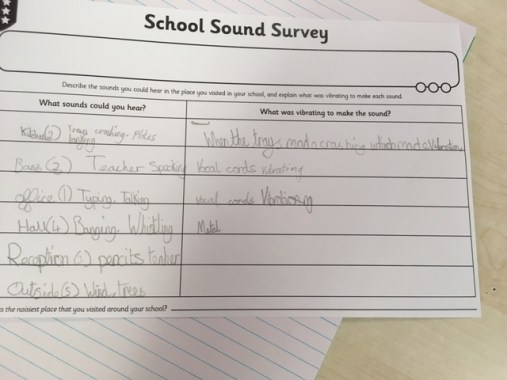 School Sound Survey
Describe the sounds you could hear in the place you visited in your school, and explain what was vibrating to make each sound.
What sounds could you hear?
What was vibrating to make the sound?
(2) Trays crashing. Plates
When the trays made a crashing which made Vibration
(3) Teacher Speaking
Vocal cords vibrating
office (1) Typing. Talking
vocal cords
Hall (4) Banging. Whistling
Metal
Reception
Outside (5) Wind, trees
s the noisiest place that you visited around your school?